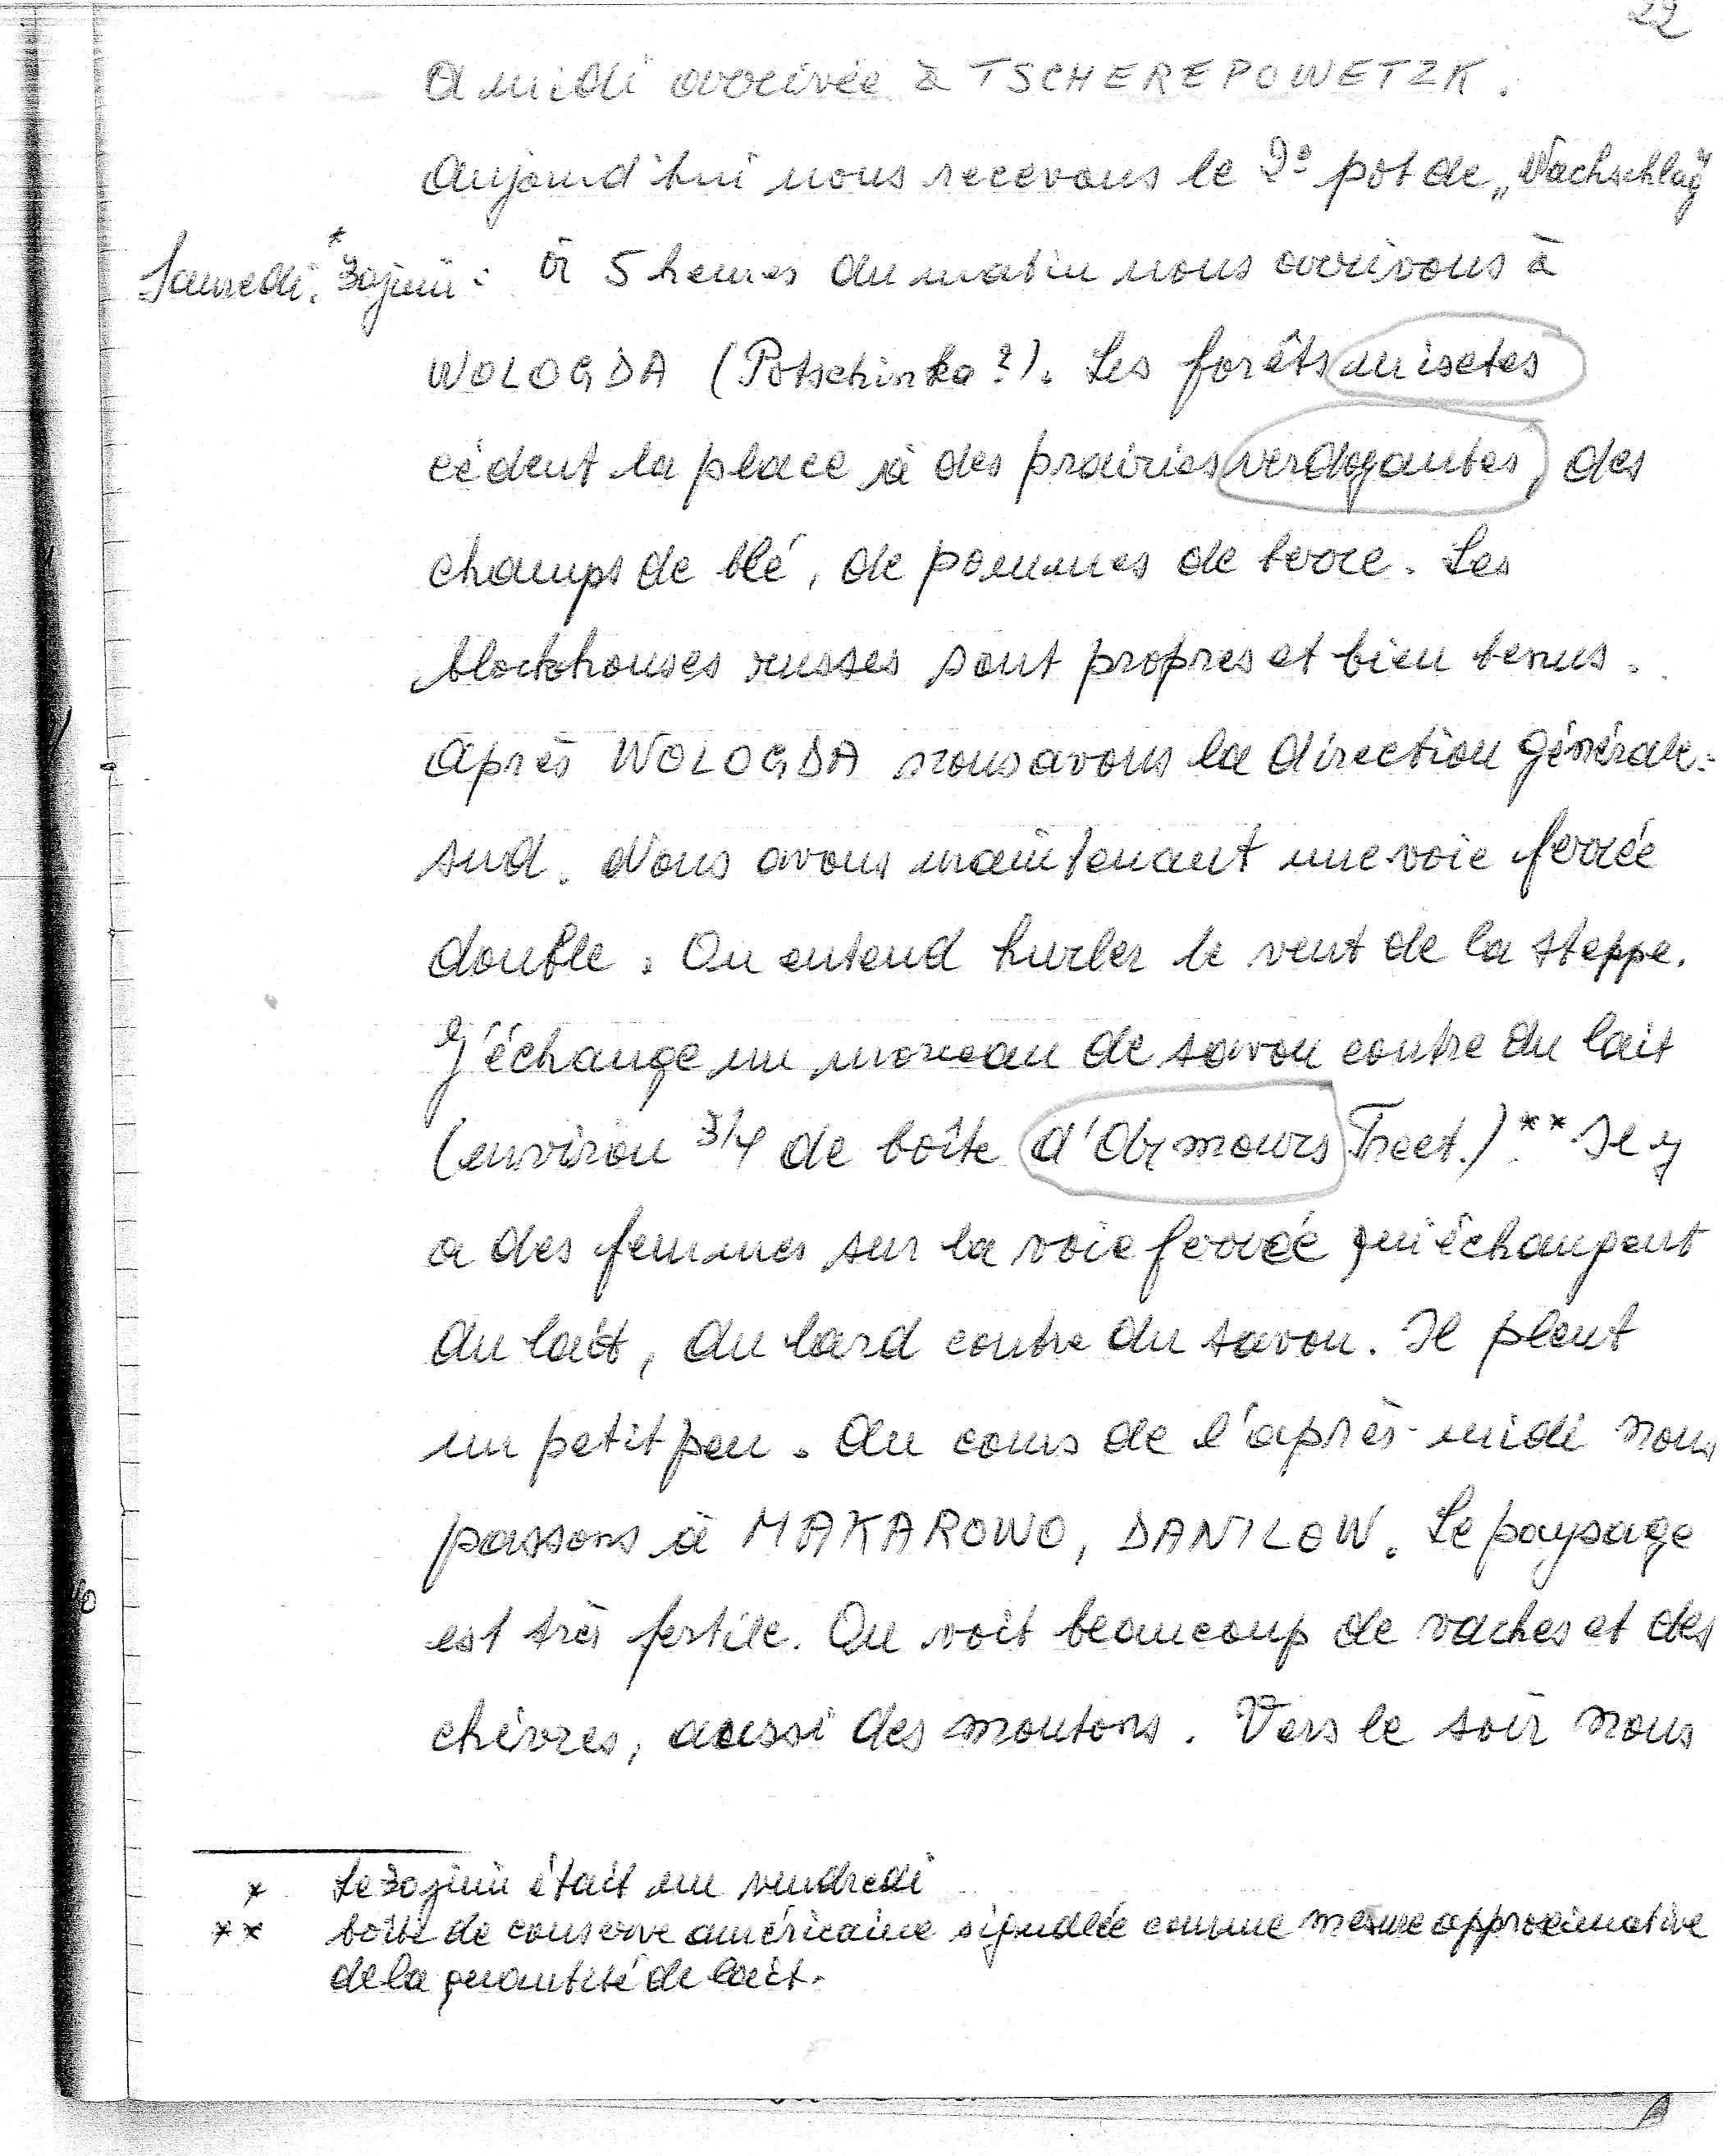 22
A midi arrivée à TSCHEREPOWETZK.
Aujourd'hui nous recevons le 2° pot de „Nachschlag"
Samedi. 30 juin* : à 5 heures du matin nous arrivons à
WOLOGDA (Potschinka?). Les forêts mixtes
cèdent la place à des prairies verdoyantes, des
champs de blé, de pommes de terre. Les
blockhouses russes sont propres et bien tenus.
Après WOLOGDA nous avons la direction générale:
sud. Nous avons maintenant une voie ferrée
double. On entend hurler le vent de la steppe.
J'échange un morceau de savon contre du lait
(environ 3/4 de boîte d'Armours Treet.)** Il y
a des femmes sur la voie ferrée qui échangent
du lait, du lard contre du savon. Il pleut
un petit peu. Au cours de l'après-midi nous
passons à MAKAROWO, DANILOW. Le paysage
est très fertile. On voit beaucoup de vaches et des
chèvres, aussi des moutons. Vers le soir nous
* Le 30 juin était un vendredi
** boîte de conserve américaine signalée comme mesure approximative
de la quantité de lait.